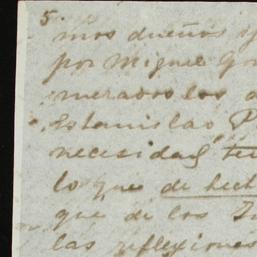 5.
mos dueños
por Miguel
merados los
Estanislao P
necesidad
lo que de hech
que de los
las reflexiones